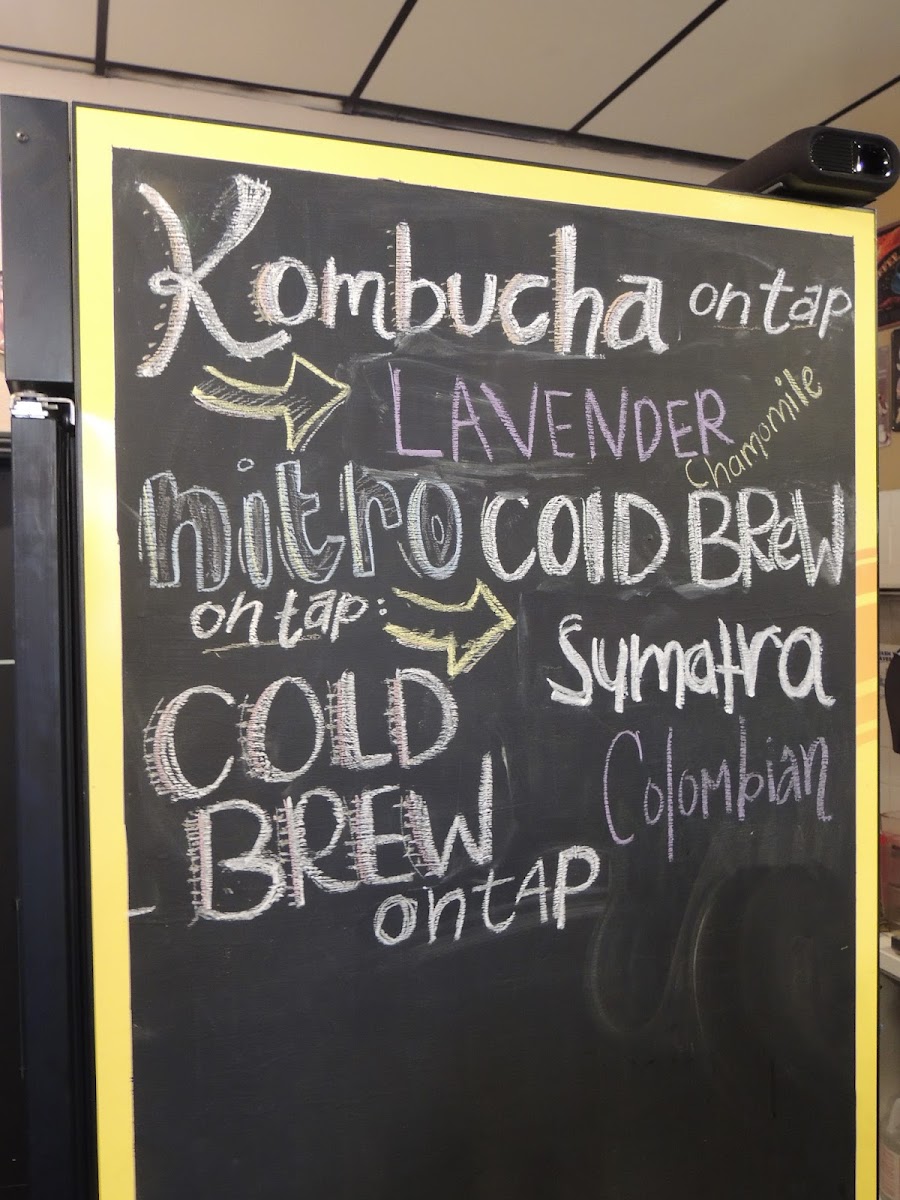 Kombucha on tap
LAVENDER
Chamomile
nitro COlD BReW
on tap:
Sumatra
COLD
BREW
Colombian
ontAP